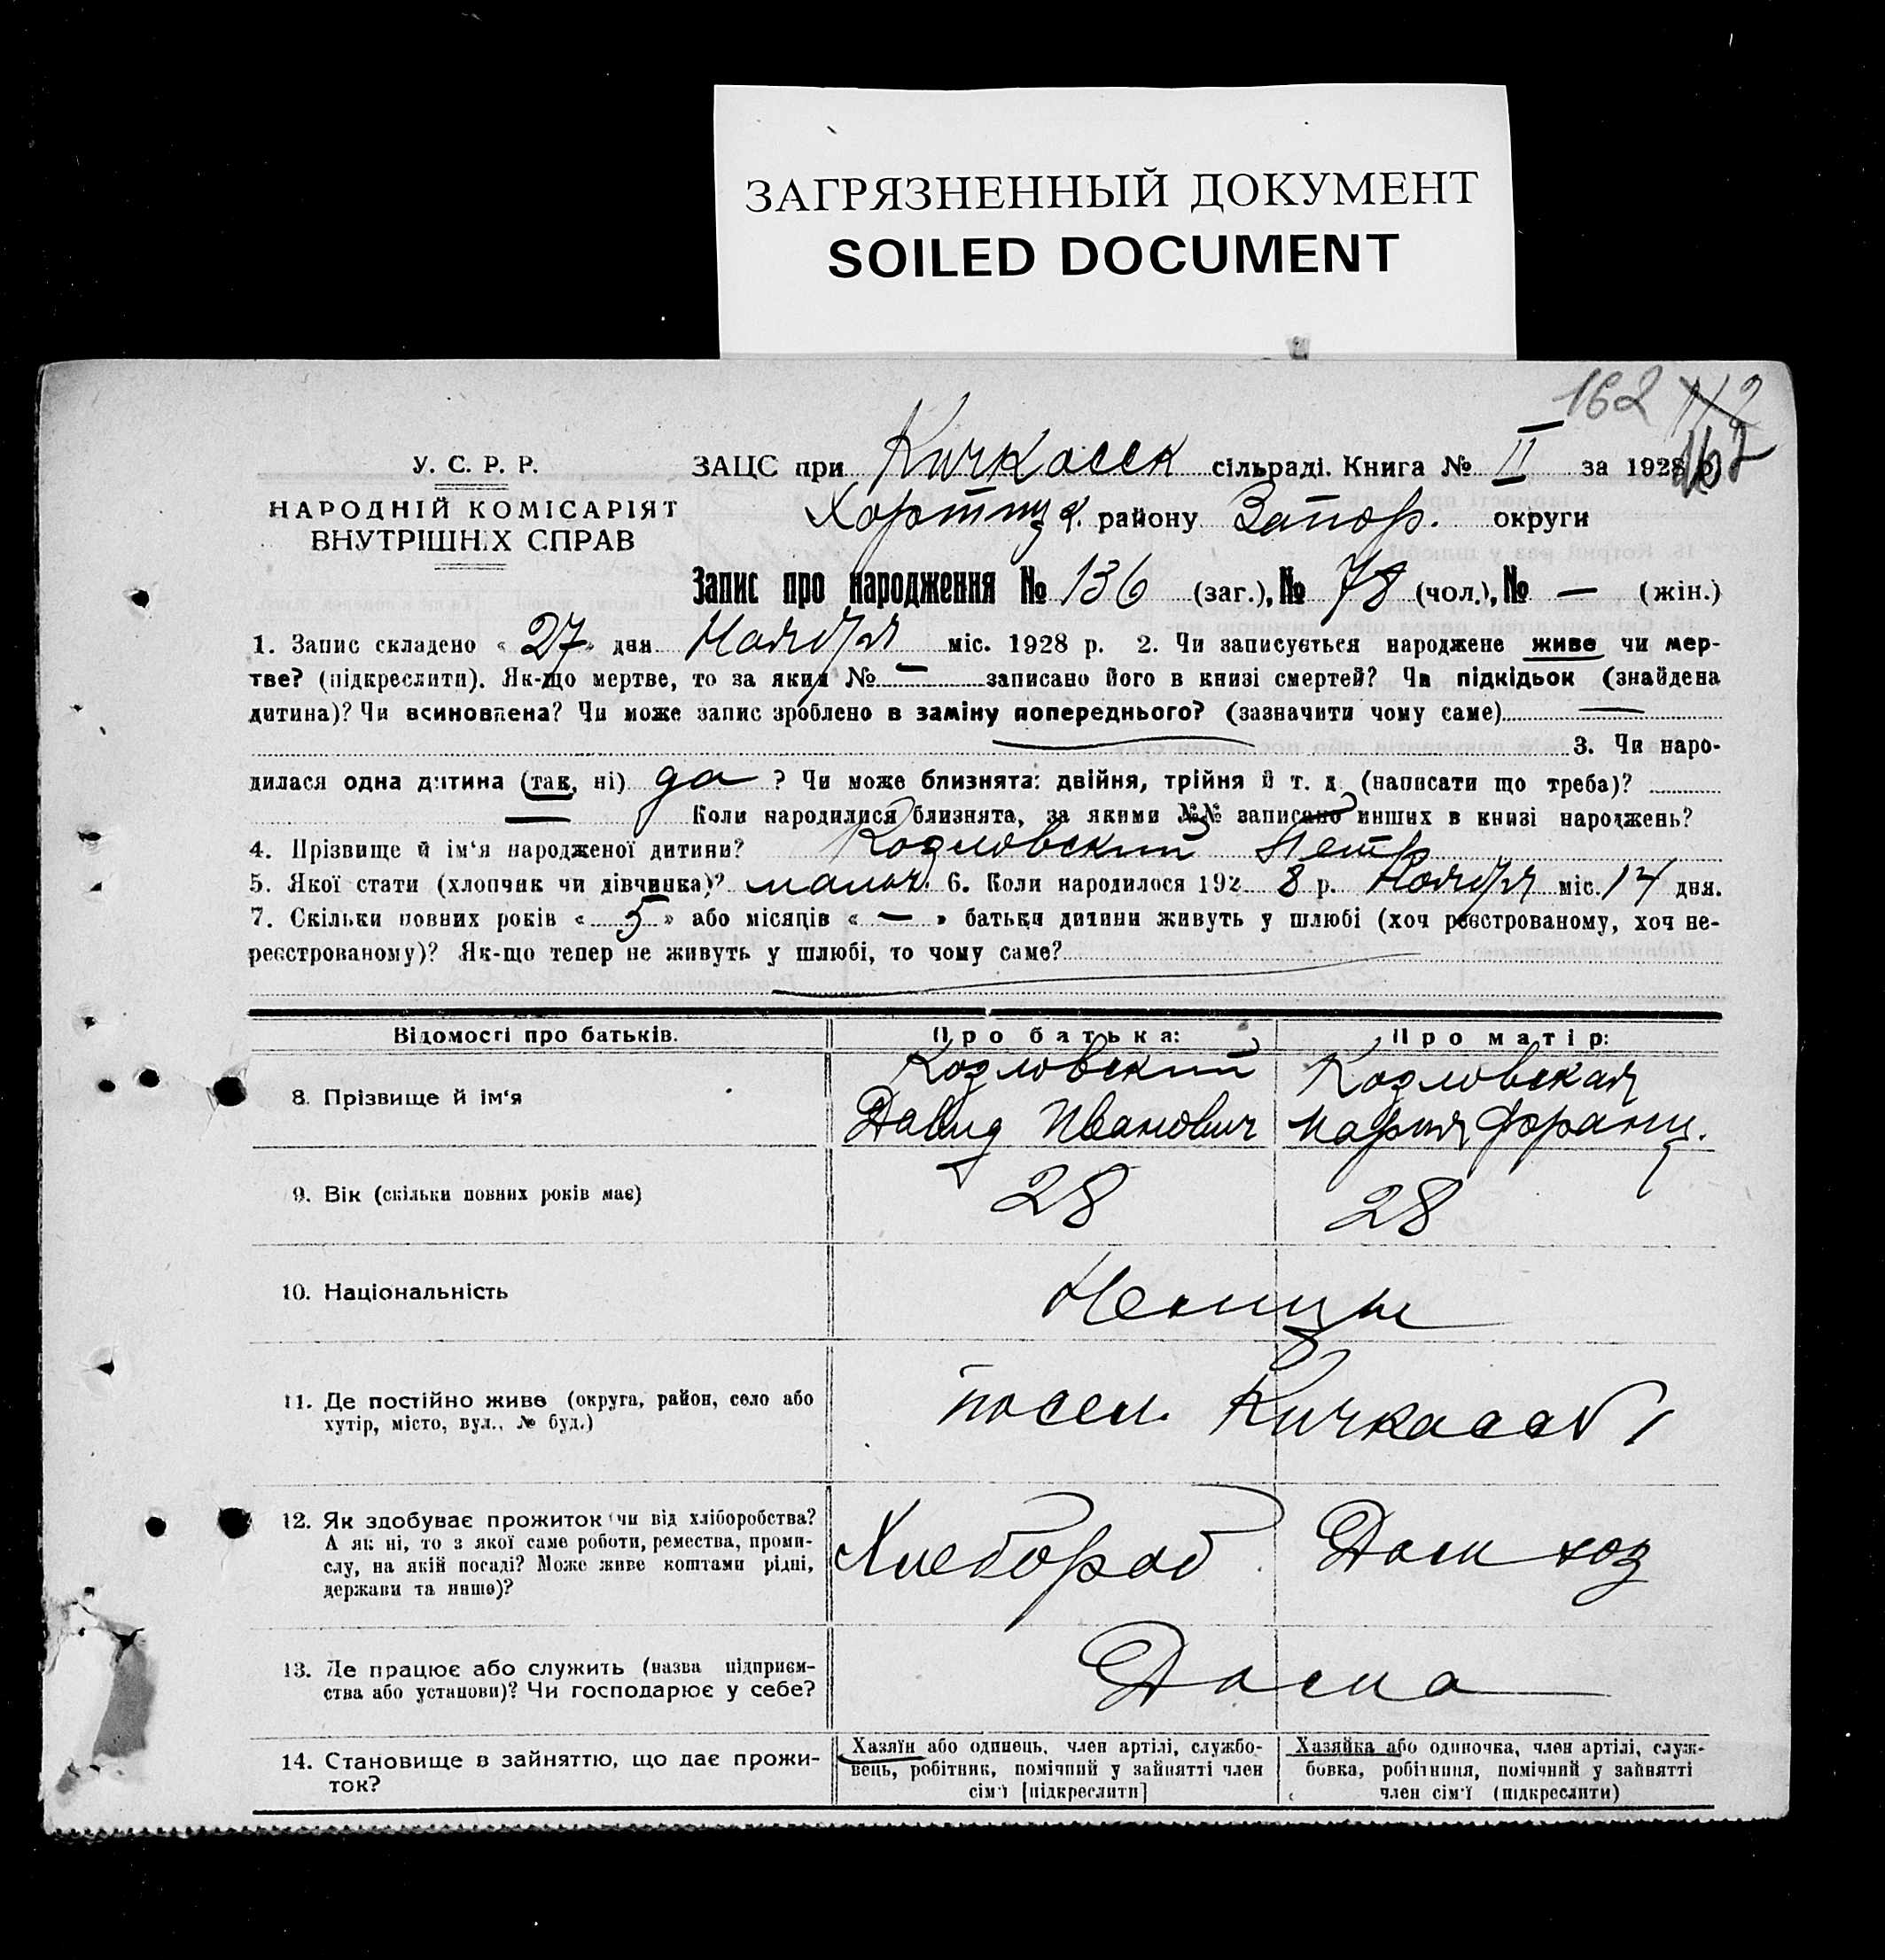 ЗАГРЯЗНЕННЫЙ ДОКУМЕНТ
SOILED DOCUMENT
162 112
162
У. С. Р. Р.
НАРОДНІЙ КОМІСАРІЯТ
ВНУТРІШНІХ СПРАВ
ЗАЦС при Кичкасск сільраді. Книга № II за 1928 р.
Хортицк. району Запор. округи
Запис про народження № 136 (заг.), № 78 (чол.), № — (жін.)
1. Запис складено « 27 » дня Ноября міс. 1928 р. 2. Чи записується народжене живе чи мер-
тве? (підкреслити). Як-що мертве, то за яким № — записано його в книзі смертей? Чи підкідьок (знайдена
дитина)? Чи всиновлена? Чи може запис зроблено в заміну попереднього? (зазначити чому саме) —
3. Чи наро-
дилася одна дитина (так, ні) да ? Чи може близнята: двійня, трійня й т. д. (написати що треба)?
— Коли народилися близнята, за якими №№ записано инших в книзі народжень?
4. Прізвище й ім‘я народженої дитини? Козловский Петр
5. Якої стати (хлопчик чи дівчинка)? мальч. 6. Коли народилося 192 8 р. Ноября міс. 14 дня.
7. Скільки повних років « 5 » або місяців « — » батьки дитини живуть у шлюбі (хоч реєстрованому, хоч не-
реєстрованому)? Як-що тепер не живуть у шлюбі, то чому саме?
Відомості про батьків. Про батька: Про матір:
8. Прізвище й ім‘я Козловский Давид Иванович Козловская Мария Франц.
9. Вік (скільки повних років має) 28 28
10. Національність Немцы
11. Де постійно живе (округа, район, село або
хутір, місто, вул., № буд.) посел. Кичкасс № 1
12. Як здобуває прожиток чи від хліборобства?
А як ні, то з якої саме роботи, ремества, проми-
слу, на якій посаді? Може живе коштами рідні,
держави та инше)? Хлебороб Дом хоз
13. Де працює або служить (назва підприєм-
ства або установи)? Чи господарює у себе? Дома
14. Становище в зайняттю, що дає прожи-
ток?
Хазяїн або одинець, член артілі, службо-
вець, робітник, помічний у зайнятті член
сім‘ї [підкреслити]
Хазяйка або одиночка, член артілі, служ-
бовка, робітниця, помічний у зайнятті
член сім‘ї (підкреслити)